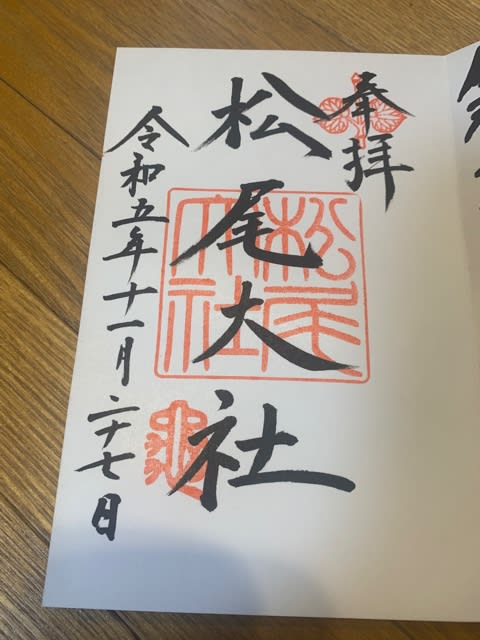 奉拝
松尾大社
松尾大社
令和五年十一月二十七日